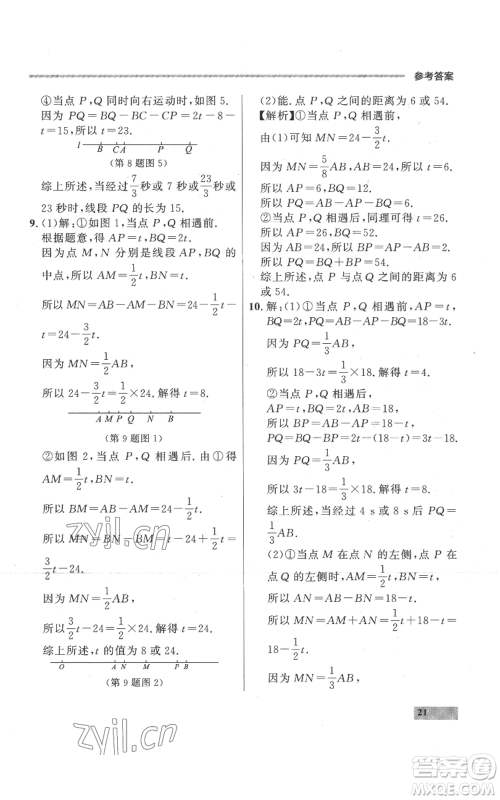 参考答案
④当点 P,Q 同时向右运动时,如图 5.
因为 PQ=BQ-BC-CP=2t-8
-t=15,所以 t=23.
l B C A P Q
(第 8 题图 5)
综上所述,当过 7/3 秒或 7 秒或 23/3 秒或
23 秒时,线段 PQ 的长为 15.
9. (1)解:①如图 1,当点 P,Q 相遇前.
根据题意,得 AP=t,BQ=2t.
因为点 M,N 分别是线段 AP,BQ 的
中点,所以 AM=1/2t,BN=t.
所以 MN=AB-AM-BN=24-1/2t
-t=24-3/2t.
因为 MN=1/2AB,
所以 24-3/2t=1/2×24. 解得 t=8.
A M P Q N B
(第 9 题图 1)
②如图 2,当点 P,Q 相遇后. 由①得
AM=1/2t,BN=t.
所以 BM=AB-AM=24-1/2t.
所以 MN=BN-BM=t-24+1/2t=
3/2t-24.
因为 MN=1/2AB,
所以 3/2t-24=1/2×24. 解得 t=24.
综上所述,t 的值为 8 或 24.
O A M P B
(第 9 题图 2)
(2)能. 点 P,Q 之间的距离为 6 或 54.
【解析】①当点 P,Q 相遇前,
由(1)可知 MN=24-3/2t.
因为 MN=5/8AB,
所以 24-3/2t=5/8×24. 解得 t=6.
所以 AP=6,BQ=12.
所以 PQ=AB-AP-BQ=6.
②当点 P,Q 相遇后,同理可得 t=26.
所以 AP=26,BQ=52.
所以 BP=AP-AB=2.
所以 PQ=BP+BQ=54.
综上所述,点 P 与点 Q 之间的距离为 6
或 54.
10. 解:(1)①当点 P,Q 相遇前,AP=t,
BQ=2t,PQ=AB-AP-BQ=18-3t.
因为 PQ=1/3AB,
所以 18-3t=1/3×18. 解得 t=4.
②当点 P,Q 相遇后,
AP=t,BQ=2t,
所以 BP=AB-AP=18-t,
PQ=BQ-BP=2t-(18-t)=3t-18.
因为 PQ=1/3AB,
所以 3t-18=1/3×18. 解得 t=8.
综上所述,经过 4 s 或 8 s 后 PQ=
1/3AB.
(2)①当点 M 在点 N 的左侧,点 P 在
点 Q 的左侧时,如图 1.
所以 AM=1/2AP=1/2t,BN=1/2BQ=t,
所以 MN=AB-AM-BN=18-1/2t
-t=18-3/2t.
因为 MN=1/2AB,
21
zyjl.cn
zyjl.cn